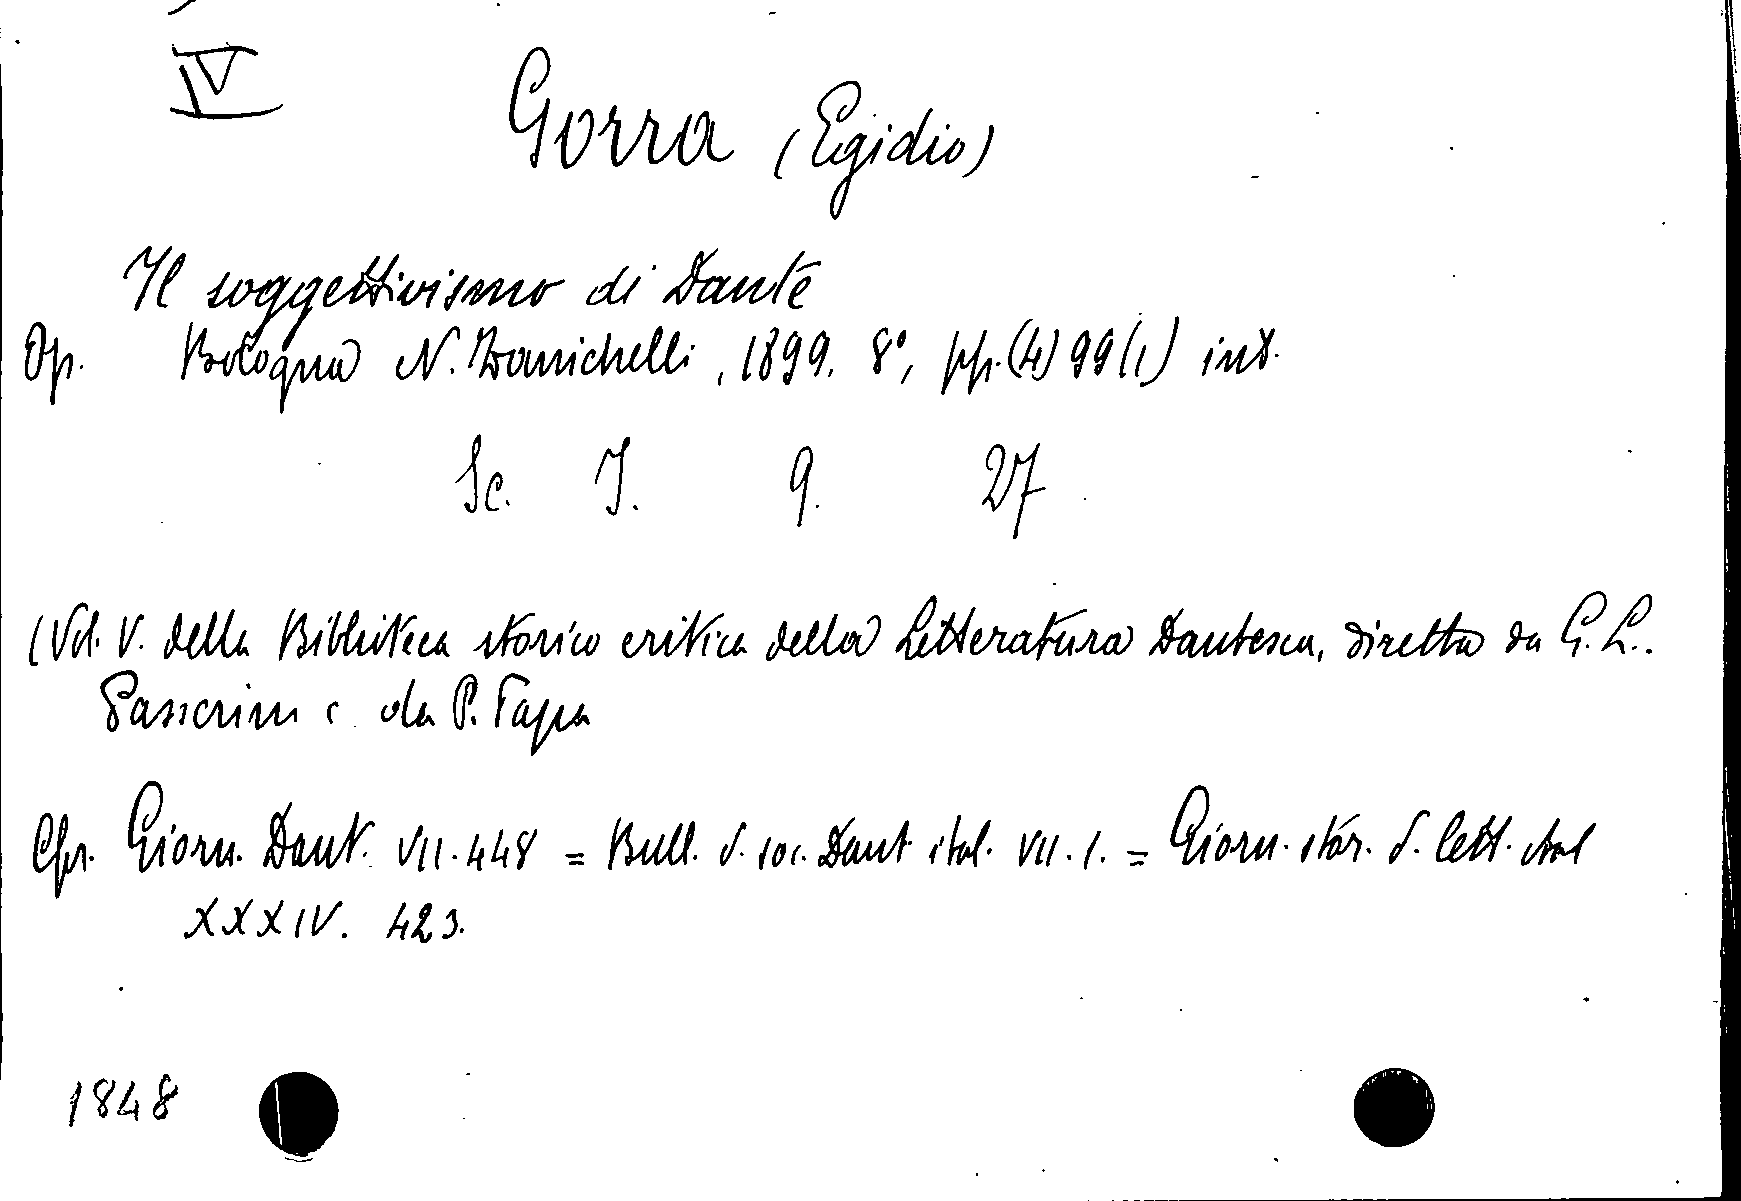 IV
Gorra (Egidio)
Il soggettivismo di Dante
Op. Bologna N. Zanichelli, 1899. 8°, pp. (4) 99 (1) int.
Sc. I. 9. 27
(Vol. V. della Biblioteca storico critica della Letteratura Dantesca, diretta da G. L.
Passerini e da P. Papa
Cfr. Giorn. Dant. VII. 448 = Bull. d. soc. Dant. ital. VII. 1. = Giorn. stor. d. lett. ital
XXXIV. 423.
1848